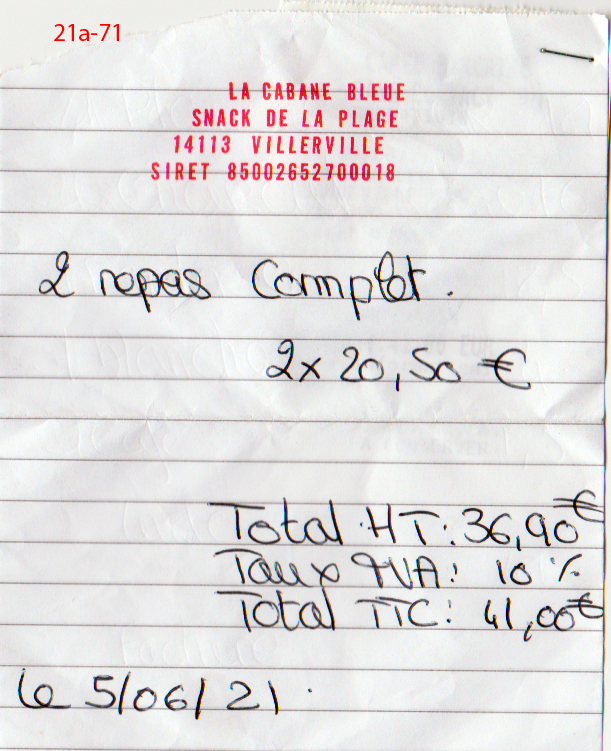 21a-71
LA CABANE BLEUE
SNACK DE LA PLAGE
14113 VILLERVILLE
SIRET 85002652700018
2 repas Complet.
2x 20,50 €
Total HT: 36,90€
Taux TVA: 10 %
Total TTC: 41,00€
le 5/06/21.